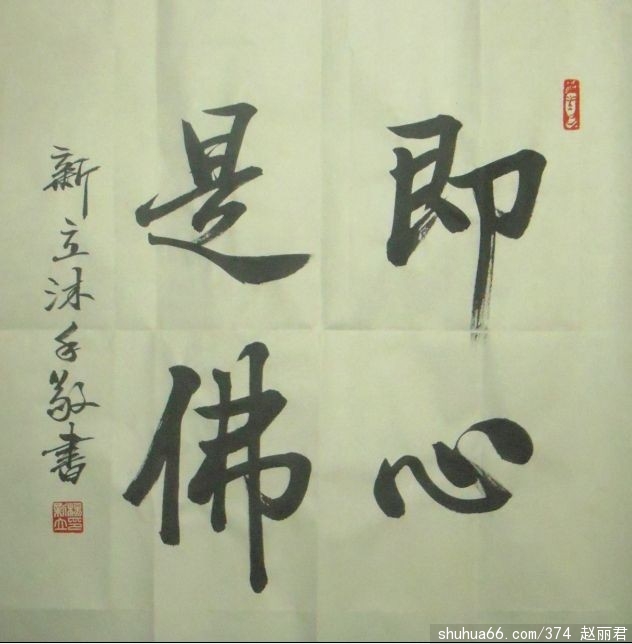 即心
是佛
新立沐手敬書
shuhua66.com/374 赵丽君